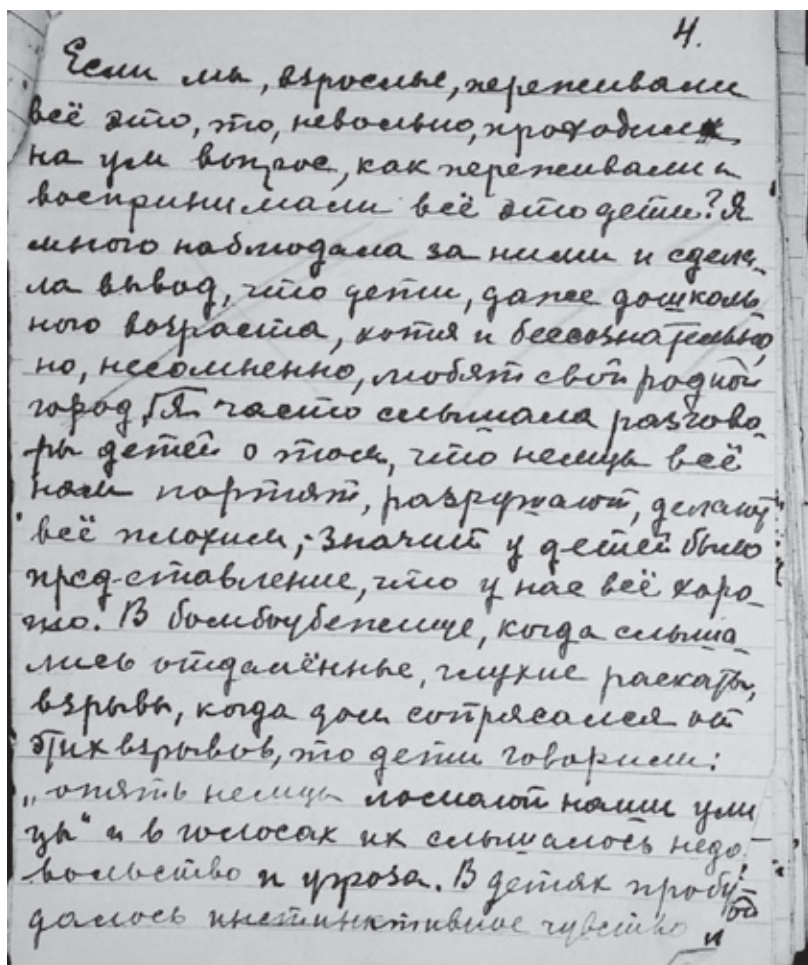 4.
Если мы, взрослые, переживали
всё это, то, невольно, проходил
на ум вопрос, как переживали и
воспринимали всё это дети? Я
много наблюдала за ними и сдела-
ла вывод, что дети, даже дошколь
ного возраста, хотя и бессознательно,
но, несомненно, любят свой родной
город. Я часто слышала разгово-
ры детей о том, что немцы всё
нам портят, разрушают, делают
всё плохим; - значит у детей было
представление, что у нас всё хоро-
шо. В бомбоубежище, когда слыша-
лись отдалённые, глухие раскаты,
взрывы, когда дом сотрясался от
этих взрывов, то дети говорили:
„опять немцы ломают наши ули
цы" и в голосах их слышалось недо-
вольство и угроза. В детях пробу-
далось инстинктивное чувство
и